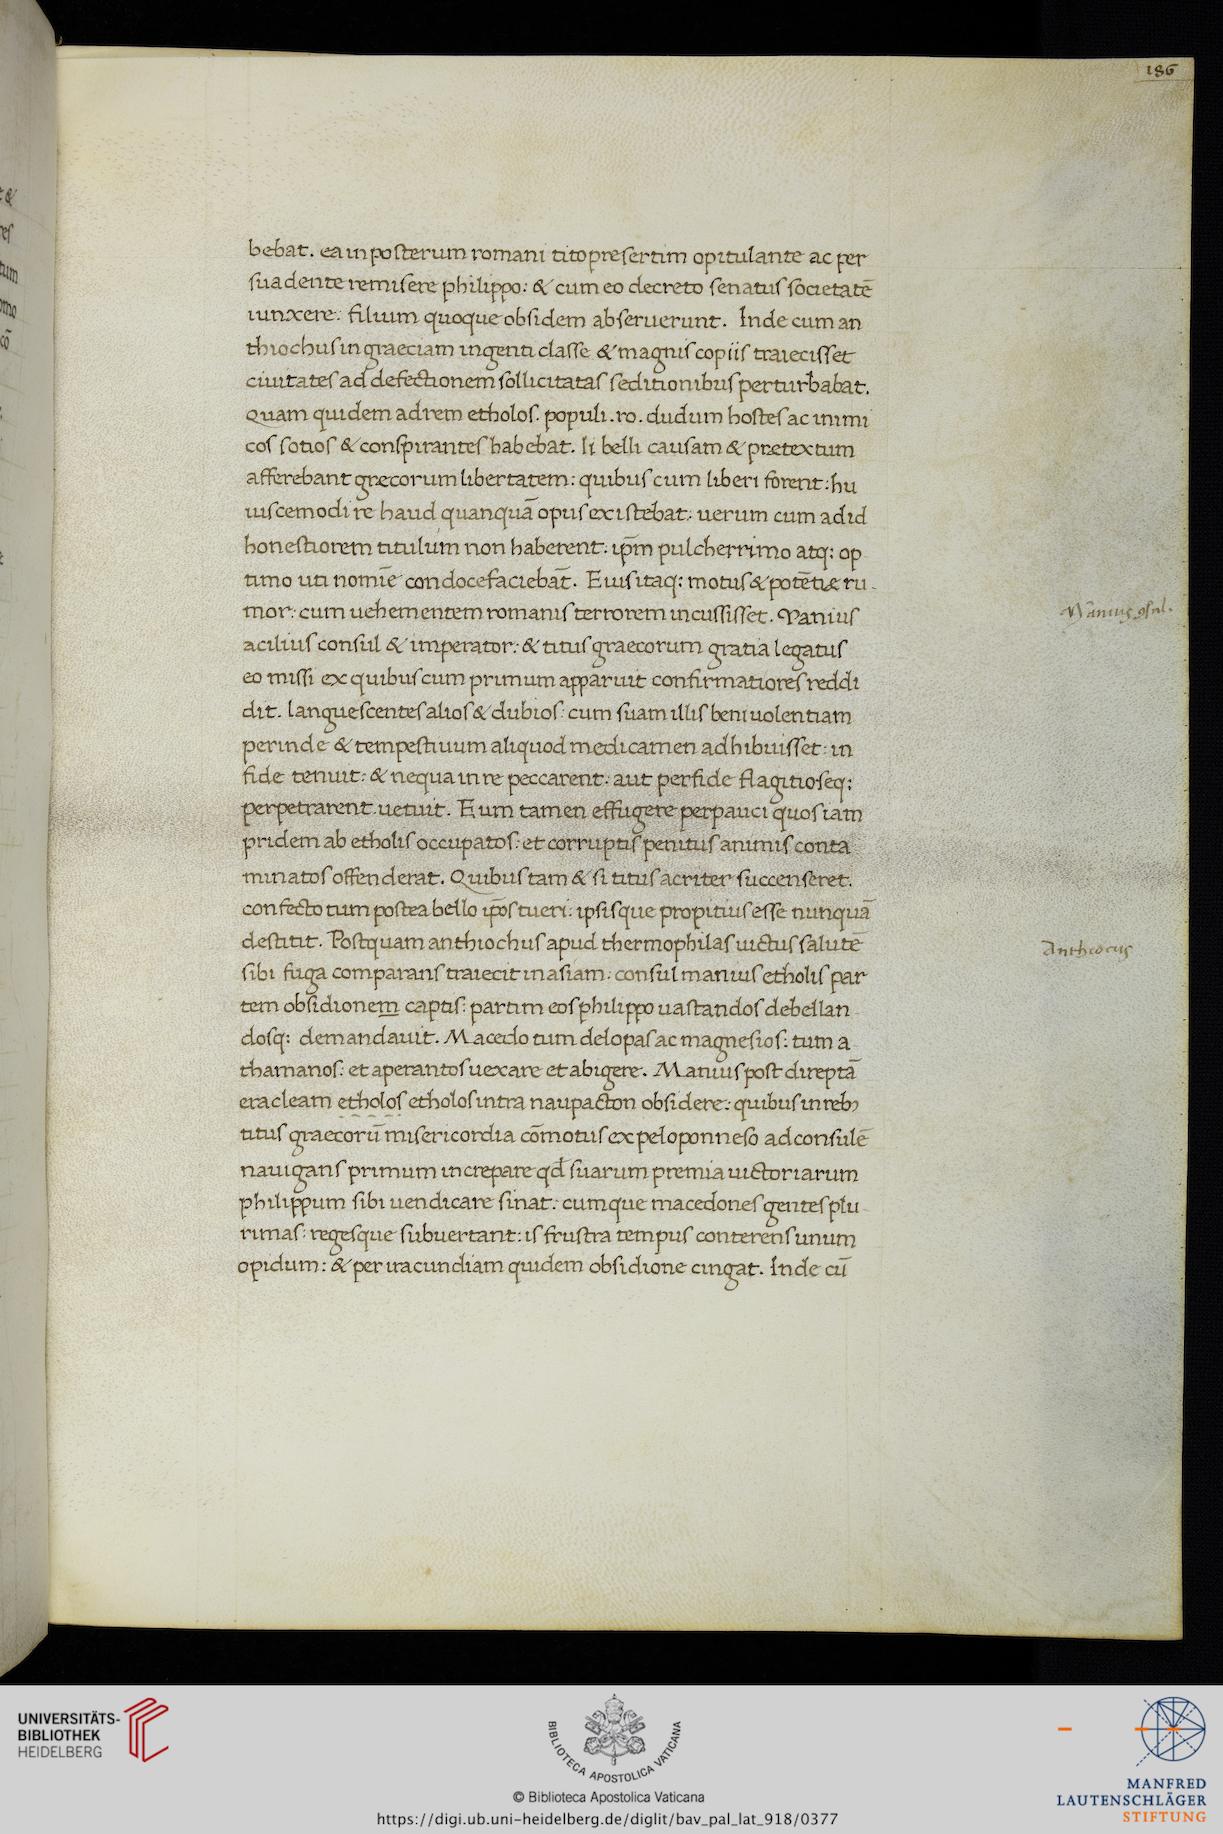 186
bebat. ea in posterum romani tito presertim opitulante ac per
suadente remisere philippo: & cum eo decreto senatus societatē
iunxere: filium quoque obsidem abseruerunt. Inde cum an
thiochus in graeciam ingenti classe & magnis copiis traiecisset
ciuitates ad defectionem sollicitatas seditionibus perturbabat.
Quam quidem ad rem etholos. populi .ro. dudum hostes ac inimi
cos sotios & conspirantes habebat. Ii belli causam & pretextum
afferebant grecorum libertatem: quibus cum liberi forent: hu
iuscemodi re haud quanquā opus existebat: uerum cum ad id
honestiorem titulum non haberent: ip̄m pulcherrimo atq: op
timo uti nomīe condocefaciebāt. Eius itaq: motus & potētiæ ru
mor: cum uehementem romanis terrorem incussisset. Manius
acilius consul & imperator: & titus graecorum gratia legatus
eo missi ex quibus cum primum apparuit confirmatiores reddi
dit. languescentes alios & dubios: cum suam illis beniuolentiam
perinde & tempestiuum aliquod medicamen adhibuisset: in
fide tenuit: & nequa in re peccarent: aut perfide flagitioseq:
perpetrarent uetuit. Eum tamen effugere perpauci quos iam
pridem ab etholis occupatos: et corruptis penitus animis conta
minatos offenderat. Quibus tam & si titus acriter succenseret.
confecto tum postea bello ip̄os tueri: ipsisque propitius esse nunquā
destitit. Postquam anthiochus apud thermophilas uictus salutē
sibi fuga comparans traiecit in asiam: consul manius etholis par
tem obsidionem captis: partim eos philippo uastandos debellan
dosq: demandauit. Macedo tum delopas ac magnesios: tum a
thamanos: et aperantos uexare et abigere. Manius post direptā
eracleam etholos etholos intra naupacton obsidere: quibus in reb;
titus graecorū misericordia cōmotus ex peloponneso ad consulē
nauigans primum increpare qd̄ suarum premia uictoriarum
philippum sibi uendicare sinat: cumque macedones gentes plu
rimas: regesque subuertant: is frustra tempus conterens unum
opidum: & per iracundiam quidem obsidione cingat. Inde cū
Manius 9sul.
Anthiocus
UNIVERSITÄTS-
BIBLIOTHEK
HEIDELBERG
BIBLIOTECA APOSTOLICA VATICANA
© Biblioteca Apostolica Vaticana
https://digi.ub.uni-heidelberg.de/diglit/bav_pal_lat_918/0377
MANFRED
LAUTENSCHLÄGER
STIFTUNG